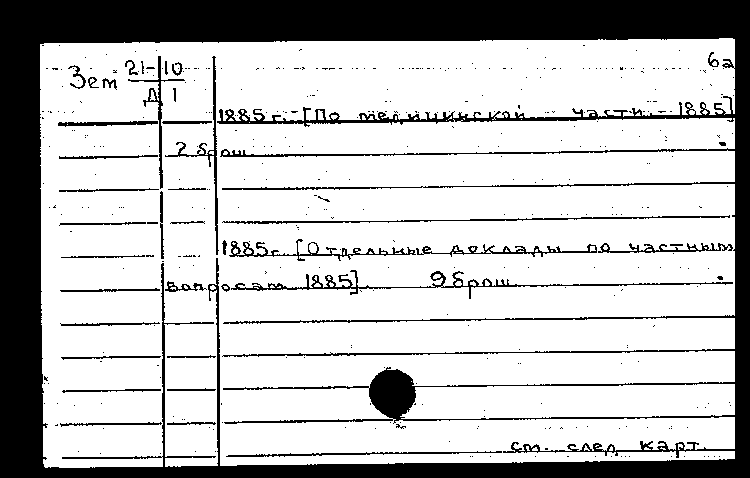 6а
Зем 21-10
Д 1
1885 г. - [По медицинской части. - 1885]
2 брош.
1885г. [Отдельные доклады по частным
вопросам 1885]. 9 брош.
см. след. карт.